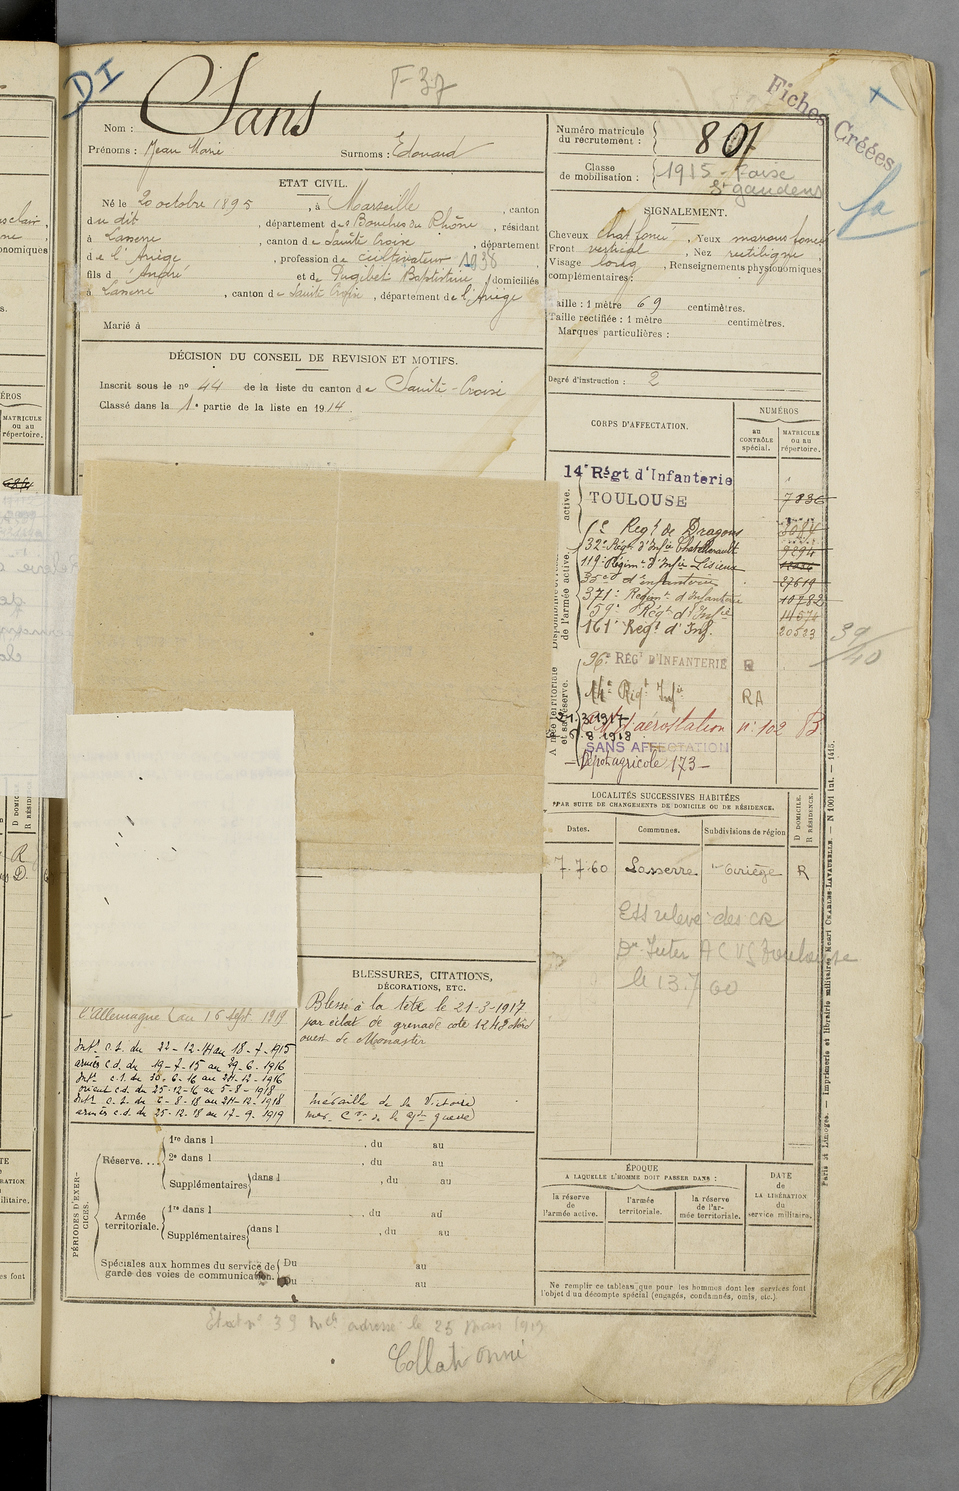 DI
F 37
Fiches Créées
Nom : Sans
Prénoms : Jean Marie Surnoms : Edouard
Numéro matricule du recrutement : 801
Classe de mobilisation : 1915
St gaudens
ETAT CIVIL.
Né le 20 octobre 1895, à Marseille, canton
du dit, département des Bouches du Rhône, résidant
à Lasserre, canton de Sainte Croix, département
de l'Ariège, profession de cultivateur 1938
fils d'André et de Pugibet Baptistine, domiciliés
à Lasserre, canton de Sainte Croix, département de l'Ariège
Marié à
SIGNALEMENT.
Cheveux chat foncé, Yeux marrons foncé
Front vertical, Nez rectiligne,
Visage long, Renseignements physionomiques
complémentaires:
Taille : 1 mètre 69 centimètres.
Taille rectifiée : 1 mètre centimètres.
Marques particulières :
Degré d'instruction : 2
DÉCISION DU CONSEIL DE REVISION ET MOTIFS.
Inscrit sous le no 44 de la liste du canton de Sainte-Croix
Classé dans la 1e partie de la liste en 1914.
CORPS D'AFFECTATION.
NUMÉROS
au CONTRÔLE spécial.
MATRICULE ou au répertoire.
14e Régt d'Infanterie
TOULOUSE 7836
Regt de Dragons
32e Régt d'Infie Chatellerault 9294
119e Régimt d'Infie Lisieux
35e d'infanterie 27619
371e Regimt d'Infanterie 10782
59e Régt d'Infie 14570
161e Régt d'Inf. 20523
39/40
96e RÉGT D'INFANTERIE R
14e Régt Infie RA
21.3.1917
d'aérostation no 102 B
8 1918
SANS AFFECTATION
Dépot agricole 173
LOCALITÉS SUCCESSIVES HABITÉES
PAR SUITE DE CHANGEMENTS DE DOMICILE OU DE RÉSIDENCE.
Dates. Communes. Subdivisions de région
D DOMICILE. R RÉSIDENCE.
7.7.60 Lasserre Ariège R
Ets releve des CR
Dn Inter A C VG Toulouse
le 13.7 60
BLESSURES, CITATIONS,
DÉCORATIONS, ETC.
Blessé à la tête le 21-3-1917
par éclat de grenade cote 1248 Nord
ouest de Monastir
Médaille de la Victoire
l'Allemagne) au 16 sept 1919
Intr c.s. du 22-12-14 au 18-7-1915
armées c.d. du 19-7-15 au 29-6-1916
Intr c.s. du 30-6-16 au 24-12-1916
orient c.d. du 25-12-16 au 5-8-1918
Intr c.s. du 6-8-18 au 24-12-1918
armées c.d. du 25-12-18 au 12-9-1919
PÉRIODES D'EXERCICES.
Réserve....
1re dans l , du au
2e dans l , du au
Supplémentaires dans l , du au
Armée territoriale.
1re dans l , du au
Supplémentaires dans l , du au
Spéciales aux hommes du service de garde des voies de communication.
Du au
Du au
ÉPOQUE
A LAQUELLE L'HOMME DOIT PASSER DANS :
la réserve de l'armée active.
l'armée territoriale.
la réserve de l'armée territoriale.
DATE de LA LIBÉRATION du service militaire.
Ne remplir ce tableau que pour les hommes dont les services font
l'objet d'un décompte spécial (engagés, condamnés, omis, etc.).
Paris et Limoges. — Imprimerie et librairie militaires Henri CHARLES-LAVAUZELLE. — N 1001 Int. — 1415.
Etat no 39 adressé le 25 mars 1919
Collationné